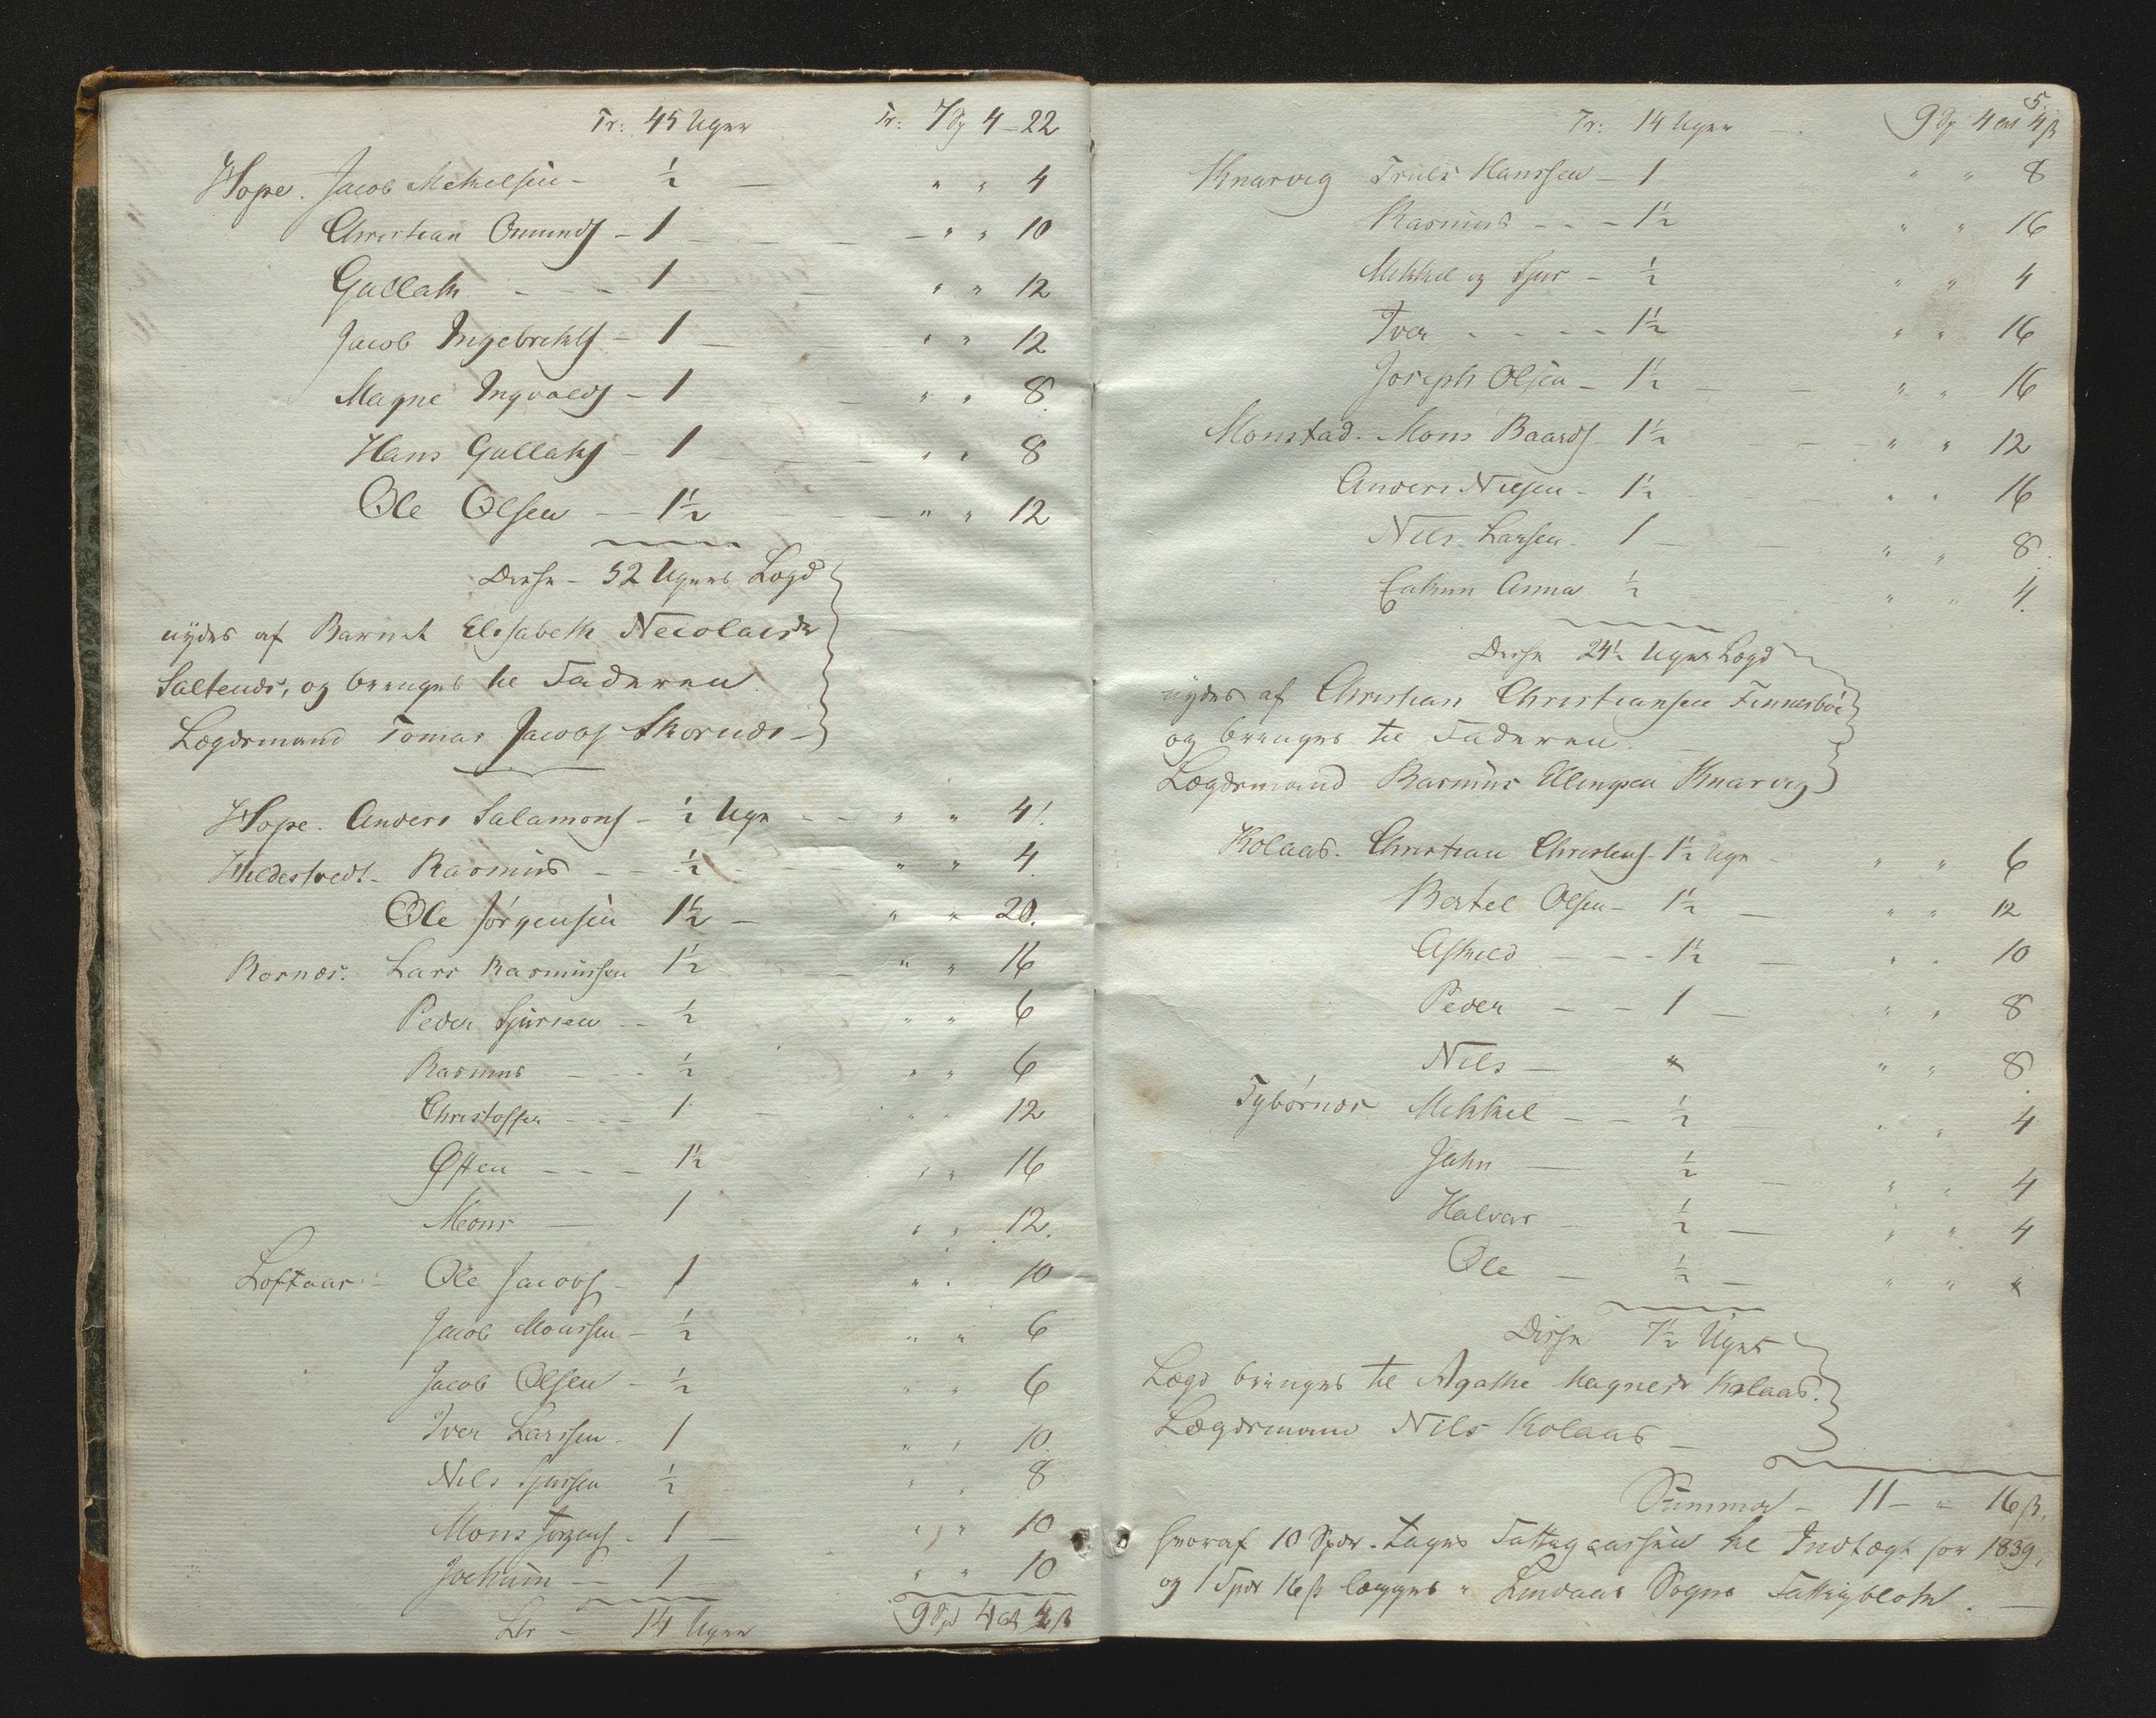 Tr: 45 Uger Tr: 7 Sp 4 - 22
Hope. Jacob Mikelsen - ½ — " " 4
Christian Omunds - 1 — " " 10
Gullak - - - 1 — " " 12
Jacob Ingebrikts - 1 — " " 12
Magne Ingvalds - 1 — " " 8
Hans Gullaks - 1 — " " 8
Ole Olsen — 1½ — " " 12
Disse - 52 Ugers Lægd
nydes af Barnet Elisabeth Nicolaisdr
Saltends, og bringes til Faderen
Lægdsmand Tomas Jacobs Skornds -
Hope. Anders Salamons - ½ Uge - - " " 4.
Hildestvedt - Rasmus - - ½ — " " 4.
Ole Jørgensen 1½ — " " 20.
Rosnæs. Lars Rasmussen 1½ — " " 16
Peder Sjursen - ½ " " 6
Rasmus - - - ½ " " 6
Christoffer - - - 1 — " " 12
Østen - - - 1½ " " 16
Mons — 1 " " 12.
Loftaas - Ole Jacobs - 1 " " 10
Jacob Monssen - ½ " " 6
Jacob Olsen - ½ " " 6
Iver Larssen - 1 " " 10.
Nils Sjursen ½ " " 8
Mons Jørgens - 1 — " " 10
Jochum — 1 " " 10
Ltr - 14 Uger 9 Spd 4 ort 4 ß
5.
Tr: 14 Uger 9 Sp 4 ort 4 ß
Knarvig Truls Hanssen - 1 " " 8
Rasmus - - - 1½ " " 16
Mikkel og Sjur - ½ " " 4
Iver - - - - 1½ " " 16
Joseph Olsen - 1½ — " " 16
Monstad. Mons Baards - 1½ — " " 12
Anders Nilsen - 1½ " " 16
Nils Larsen - 1 — " " 8.
Enken Anna ½ " " 4.
Disse 24½ Ugers Lægd
nydes af Christian Christiansen Finnesbøe
og bringes til Faderen. —
Lægdsmand Rasmus Ellingsen Knarvig
Kolaas. Christian Christens - 1½ Uge - " " 6
Bertel Olsen - 1½ — " " 12
Askild - - - 1½ — " " 10
Peder - - 1 — " " 8
Nils — " " " 8.
Tybørnæs Mikkel - - ½ — " " 4
Jahn — ½ — " " 4
Halvar - ½ — " " 4
Ole — ½ — " " "
Disse 7½ Uges
Lægd bringes til Agathe Magnesdr Kolaas.
Lægdsmand Nils Kolaas —
Summa - 11 - " 16 ß.
hvoraf 10 Spdr. tages Fattigcassen til Indtægt for 1839,
og 1 Spdr 16 ß lægges i Lindaas Sogns Fattigblok. —